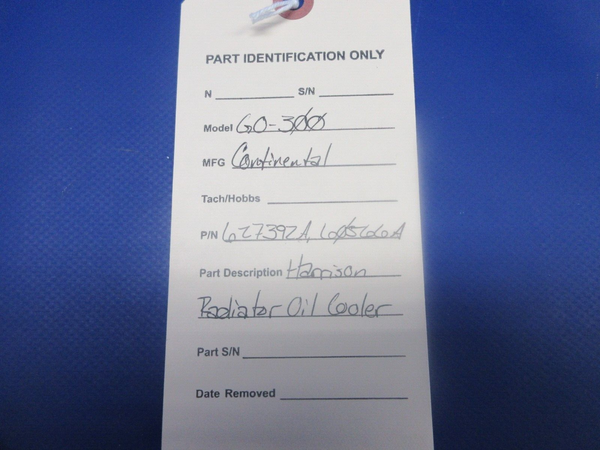 PART IDENTIFICATION ONLY
N S/N
Model GO-300
MFG Continental
Tach/Hobbs
P/N 627392A,
Part Description Harrison
Radiator Oil Cooler
Part S/N
Date Removed